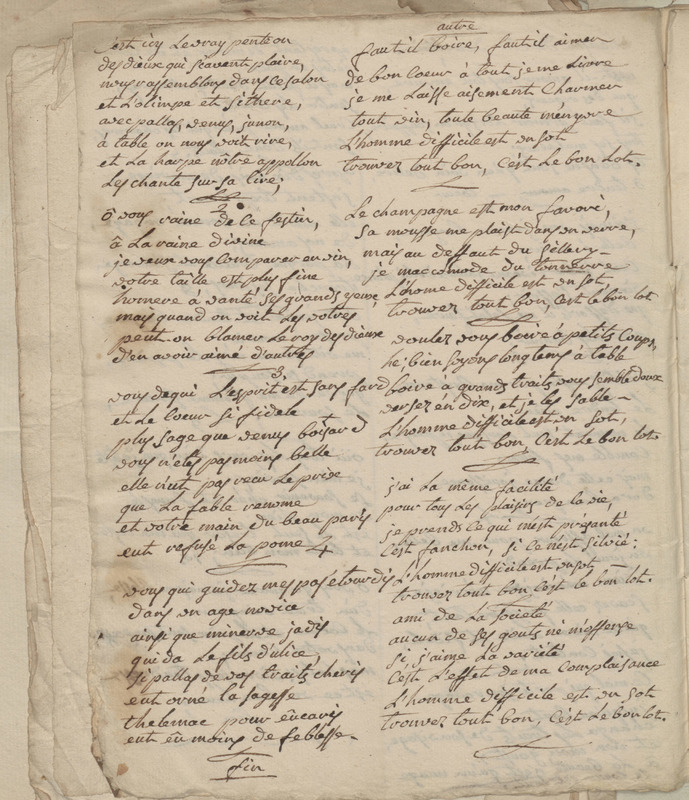 c'est icy Le vray penteon
des dieux qui sçavent plaire,
nous rassemblons dans ce salon
et L'olimpe et sithere,
avec pallas, venus, junon,
à table on nous voit rire,
et La harpe nôtre appollon
Les chante sur sa lire;
2
ô vous raine de ce festin,
à La raine divine
je veux vous comparer en vin,
votre taille est plus fine
homere à vanté ses grands yeux,
mais quand on voit Les votres
peut on blamer Le roy des dieux
d'en avoir aimé d'autres
3
vous de qui L'esprit est sans fard
et Le Coeur si fidele
plus sage que venus
vous n'etes pas moins belle
elle n'eut pas recu Le prix
que La fable renome
et votre main du beau paris
eut refusé La pome
4
vous qui guidez mes pas etourdis
dans un age novice
ainsi que minerve jadis
guida Le fils d'ulice,
si pallas de vos traits cheris
eut orné la sagesse
thelemac pour eucaris
eut eû moins de feblesse.
fin
autre
faut il boire, faut il aimer
de bon Coeur à tout je me Livre
je me Laisse aisement Charmer
tout vin, toute beauté m'enyvre
L'homme difficile est un sot
trouvez tout bon, C'est Le bon Lot.
Le champagne est mon favori,
sa mousse me plaist dans un verre,
mais au deffaut du sillery
je m'accomode du tonnerre
L'home difficile est un sot
trouvez tout bon, C'est le bon lot
voulez vous boire à petits Coups,
he; bien soyons longtems à table
boire à grands traits vous semble doux
versez en dix, et je les sable
L'homme difficile est un sot,
trouvez tout bon, C'est Le bon Lot.
j'ai La même facilité
pour tous Les plaisirs de la vie,
je prends Ce qui m'est présenté
C'est fanchon, si Ce n'est silvie;
L'homme difficile est un sot
trouvez tout bon C'est le bon lot.
ami de La societé
aucun de ses gouts ne m'offense
si, j'aime La varieté
C'est L'effet de ma Complaisance
L'homme difficile est un sot
trouvez tout bon, C'est Le bon lot.